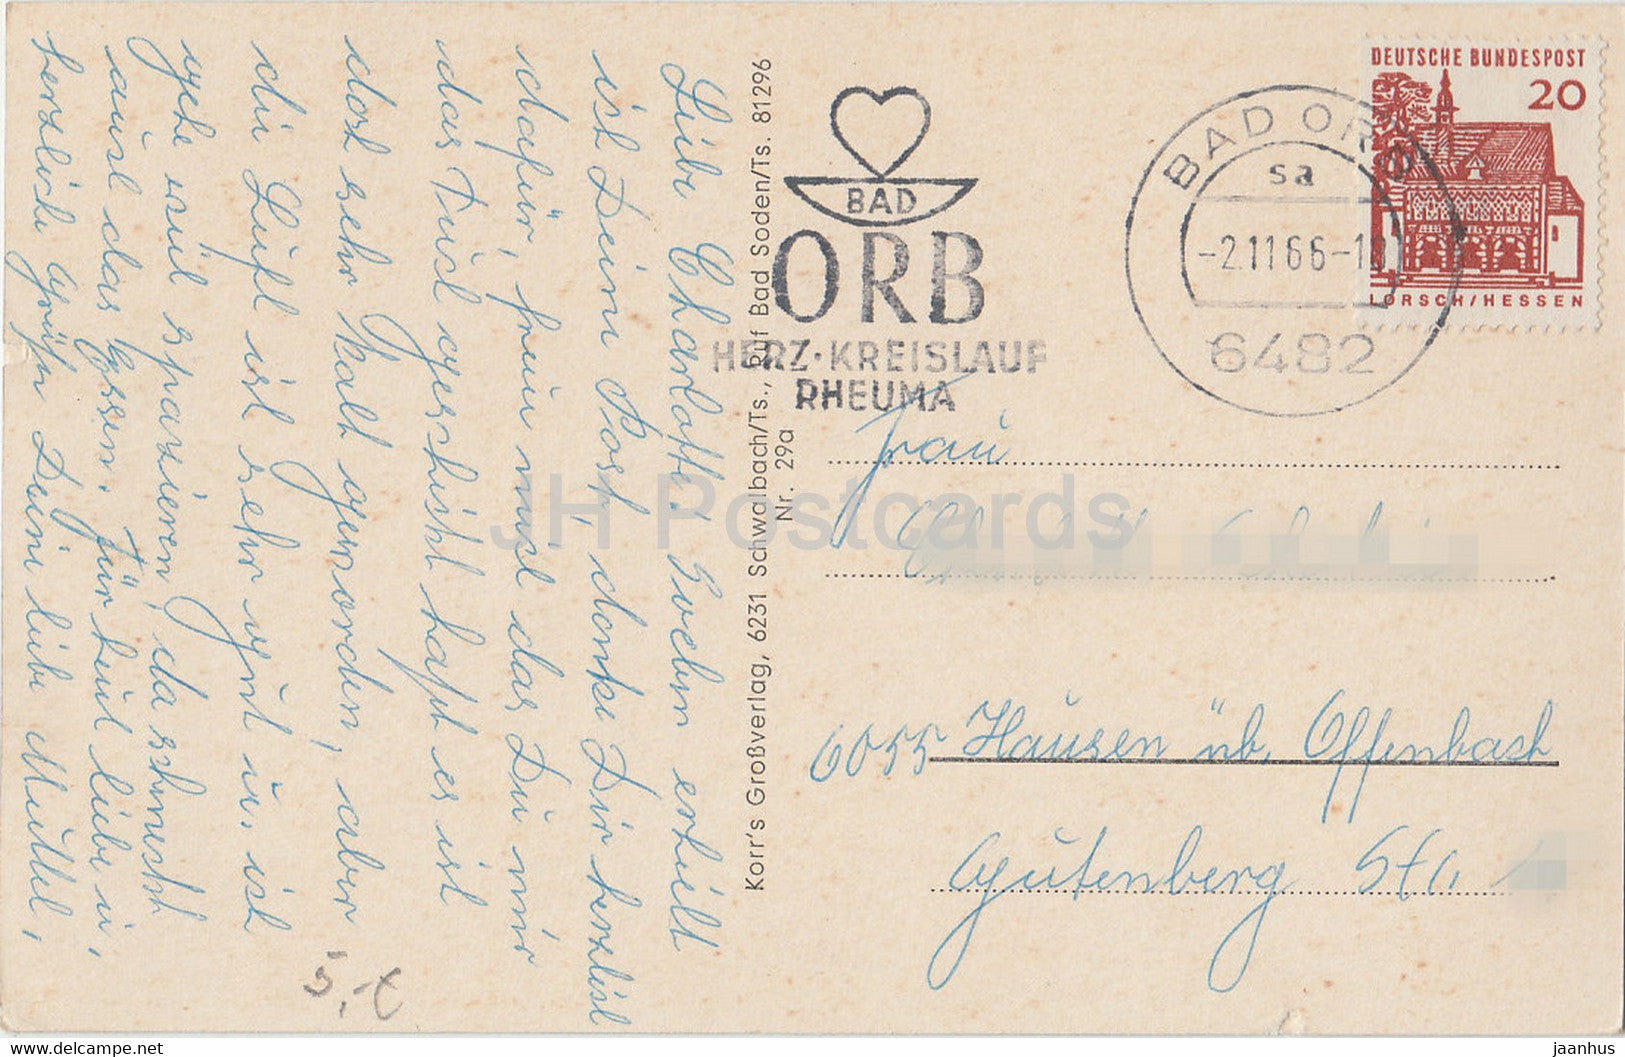 Liebe Charlotte! Soeben erhielt
ich Deine Post, danke Dir herzlich
dafür, freue mich das Du mir
das Tuch geschickt hast es ist
dort sehr kalt geworden, aber
die Luft ist sehr gut u. ich
gehe viel spazieren, da schmeckt
auch das Essen. Für heut liebe u.
herzliche Grüße Deine liebe Mutter,
5,-
Korr's Großverlag, 6231 Schwalbach/Ts., Ruf Bad Soden/Ts. 81296
Nr. 29a
BAD
ORB
HERZ·KREISLAUF
RHEUMA
BAD ORB
sa
-2.11.66-1
6482
DEUTSCHE BUNDESPOST
20
LORSCH/HESSEN
Frau
6055 Hausen üb. Offenbach
Gutenberg Str.
JH Postcards
www.delcampe.net
jaanhus